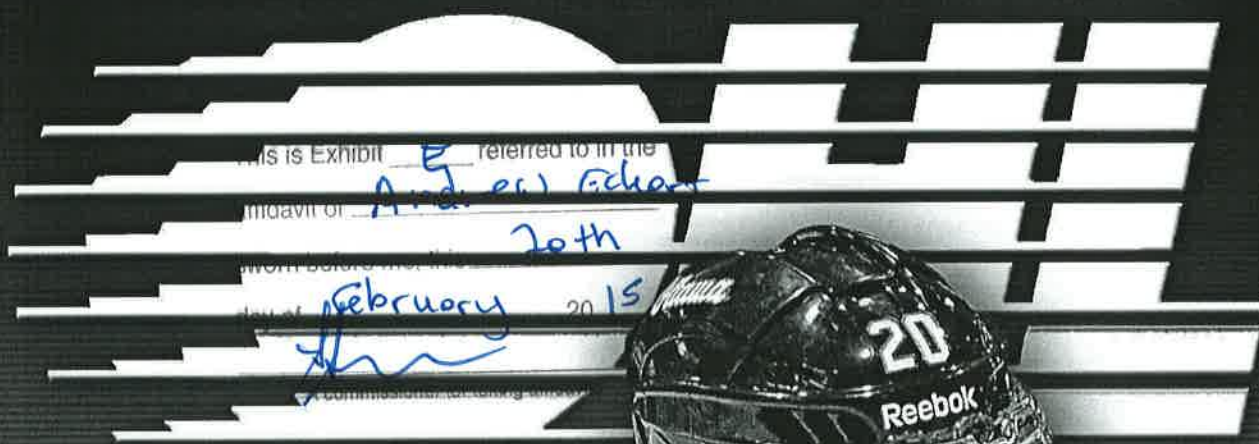 This is Exhibit E referred to in the
affidavit of Andrew Eckart
sworn before me, this 20th
day of February 20 15
A commissioner for taking
20
Reebok